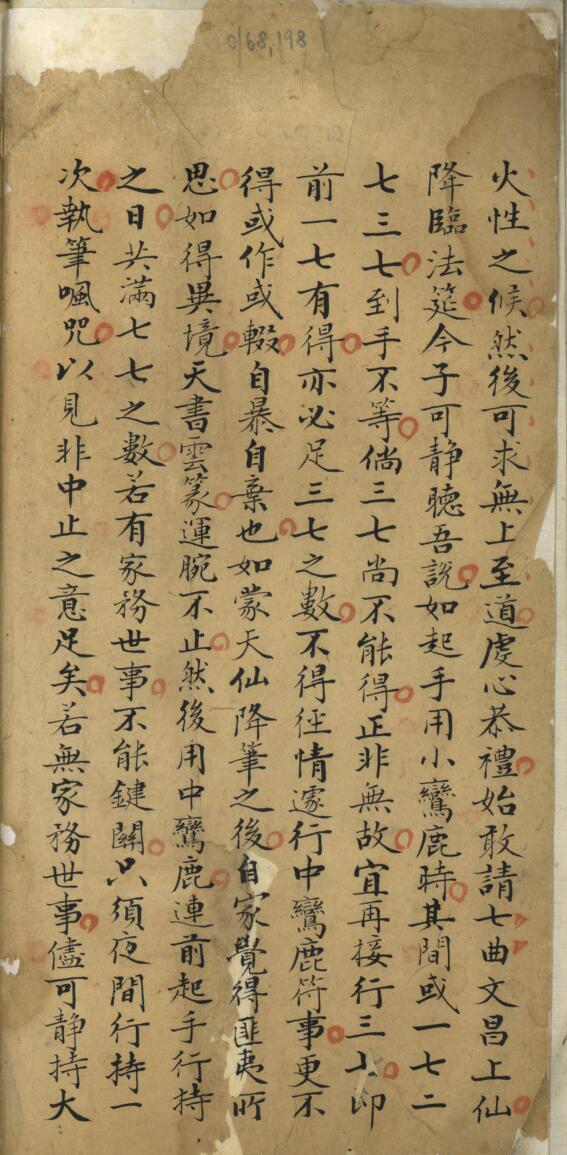 0168,198
火性之候然後可求無上至道虔心恭禮始敢請七曲文昌上仙
降臨法筵今子可静聽吾說如起手用小鸞鹿時其間或一七二
七三七到手不等倘三七尚不能得正非無故宜再接行三七即
前一七有得亦必足三七之數不得徑情遽行中鸞鹿符事更不
得或作或輟自暴自棄也如蒙天仙降筆之後自家覺得匪夷所
思如得異境天書雲篆運腕不止然後用中鸞鹿連前起手行持
之日共滿七七之數若有家務世事不能鍵關只須夜間行持一
次執筆諷咒以見非中止之意足矣若無家務世事儘可静持大